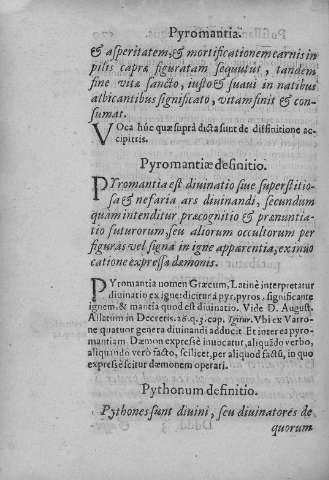 Pyromantia.
& asperitatem, & mortificationem carnis in
pilis capræ figuratam sequutui, tandem
fine vitæ sancto, iusto & suaui in natibus
albicantibus significato, vitam finit & con-
sumat.
VOca huc quæ suprà dicta sunt de diffinitione ac-
cipitris.
Pyromantiæ definitio.
PYromantia est diuinatio siue superstitio-
sa & nefaria ars diuinandi, secundum
quam intenditur præcognitio & prænuntia-
tio futurorum, seu aliorum occultorum per
figuras vel signa in igne apparentia, ex inuo
catione expressa dæmonis.
PYromantia nomen Græcum, Latinè interpretatur
diuinatio ex igne: dicitur à pyr, pyros, significante
ignem, & mantia quod est diuinatio. Vide D. August.
Allatum in Decretis. 26. q. 3. cap. Igitur. Vbi ex Varro-
ne quatuor genera diuinandi adducit. Et interea pyro-
mantiam Dæmon expressè inuocatur, aliquãdo verbo,
aliquando verò facto, scilicet, per aliquod factũ, in quo
expressè scitur dæmonem operari.
Pythonum definitio.
Pythones sunt diuini, seu diuinatores de
quorum